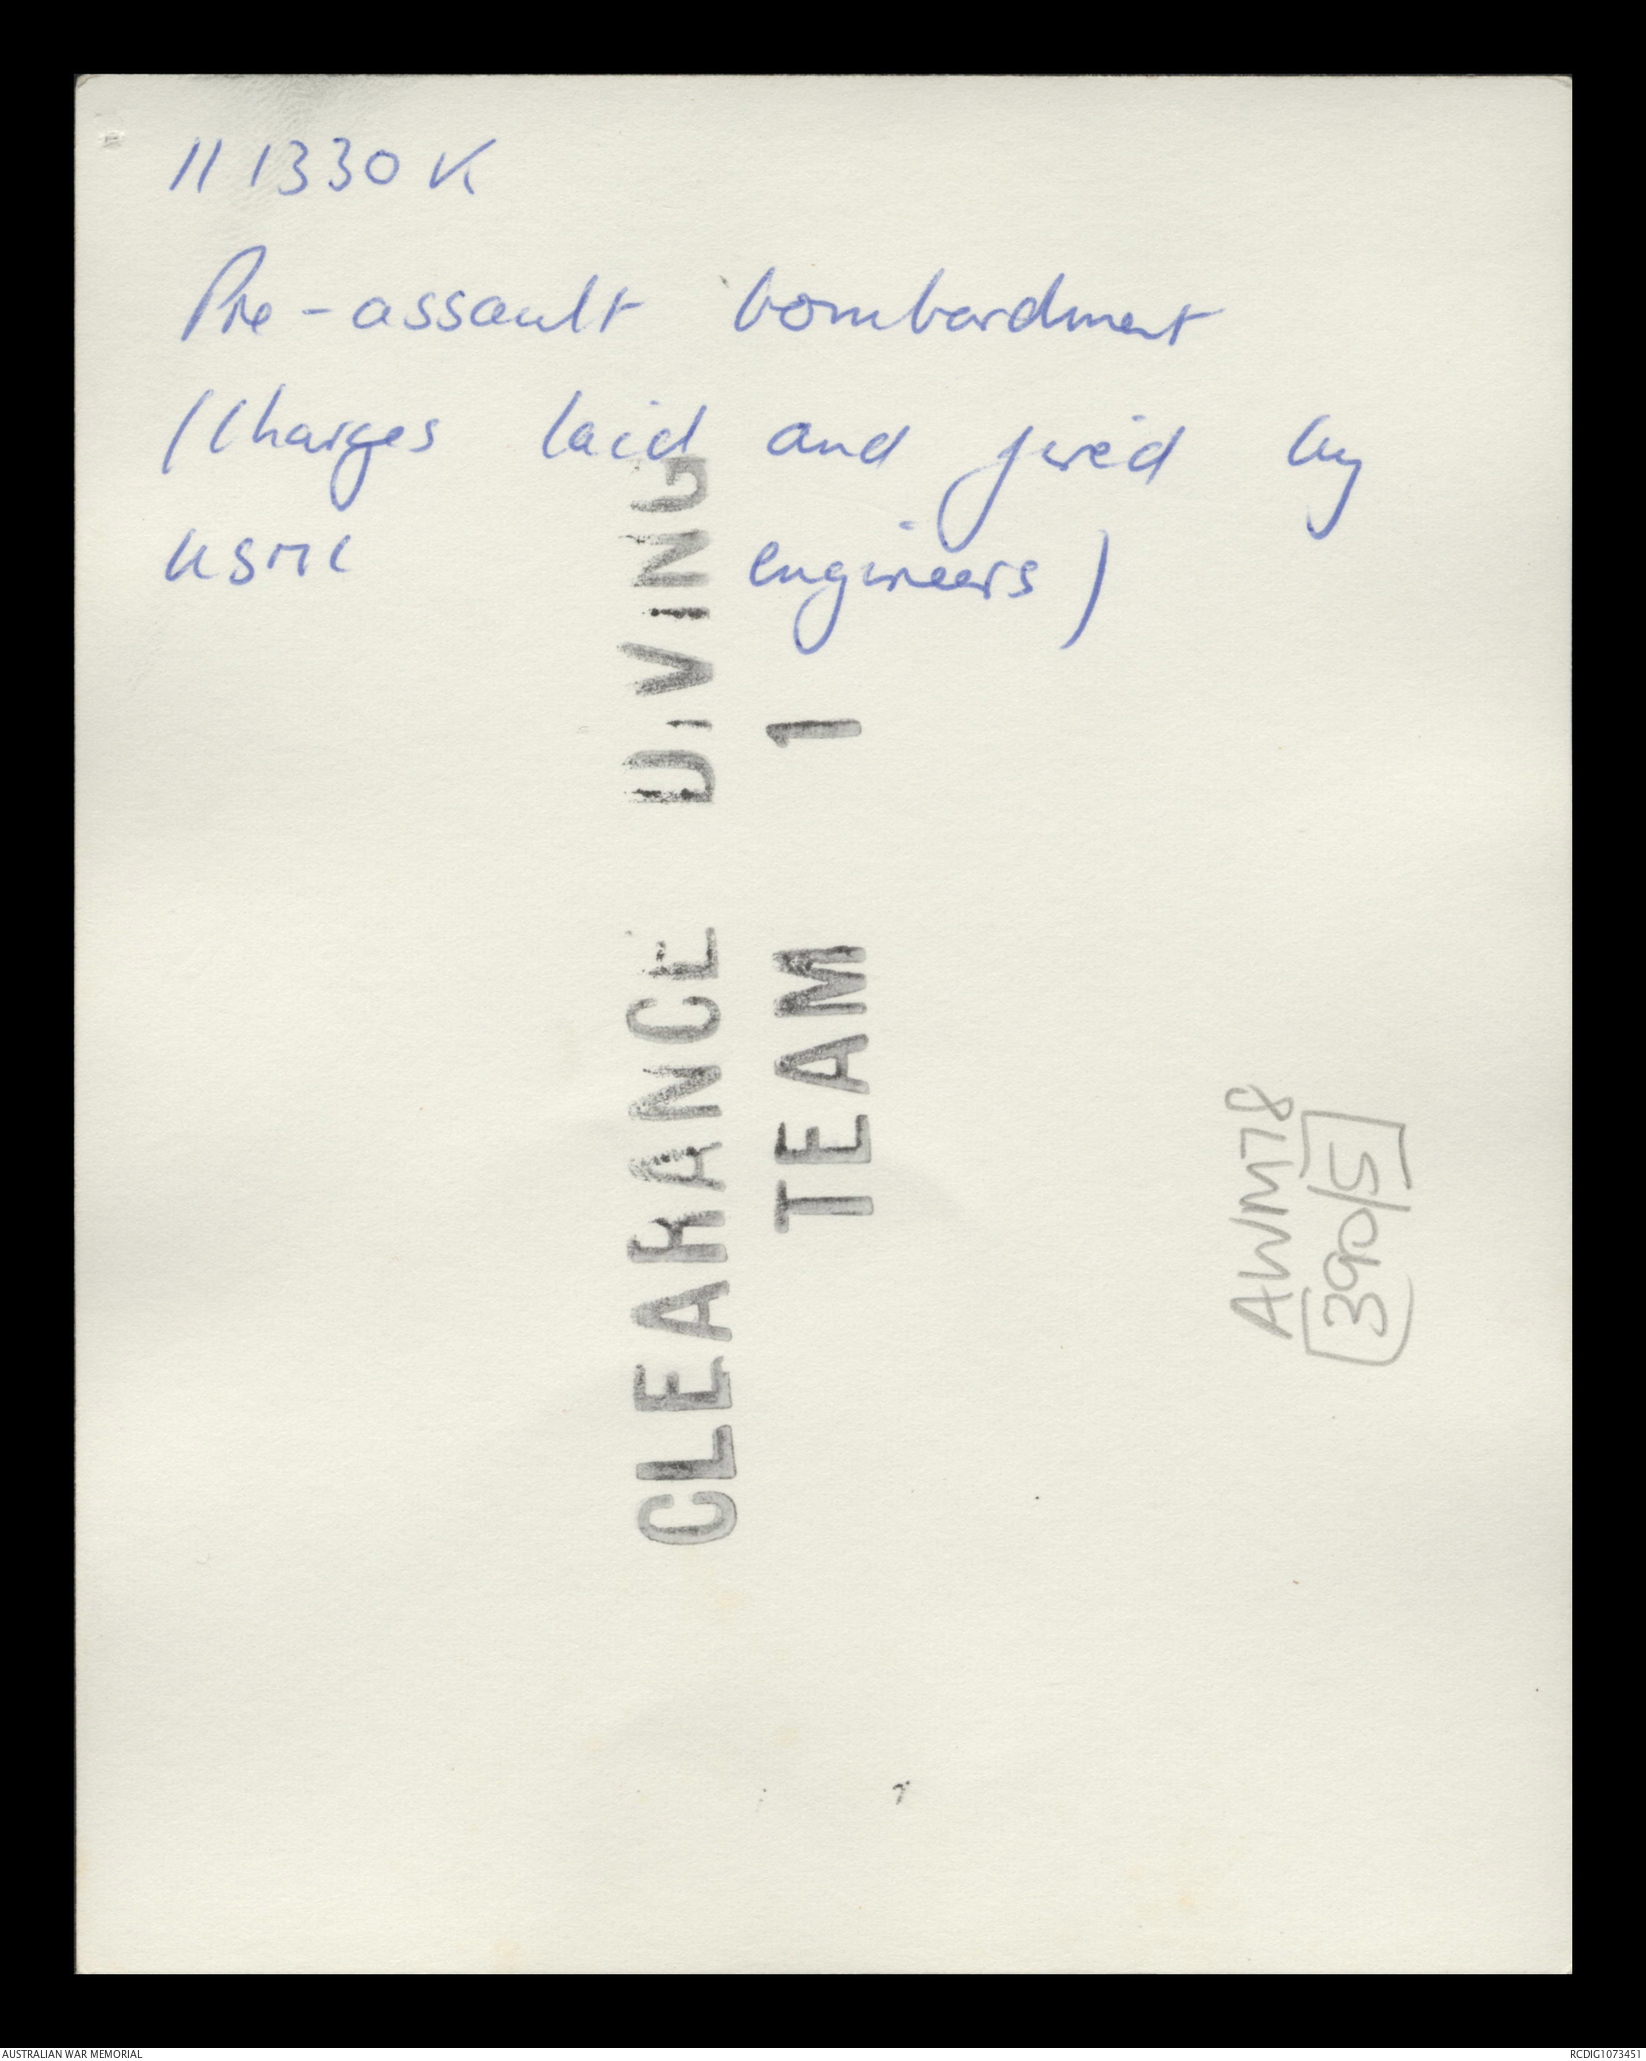 11 1330 K
Pre-assault bombardment
(Charges laid and fired by
USMC engineers)
CLEARANCE DIVING
TEAM 1
AWM78
[390/5]
AUSTRALIAN WAR MEMORIAL
RCDIG1073451